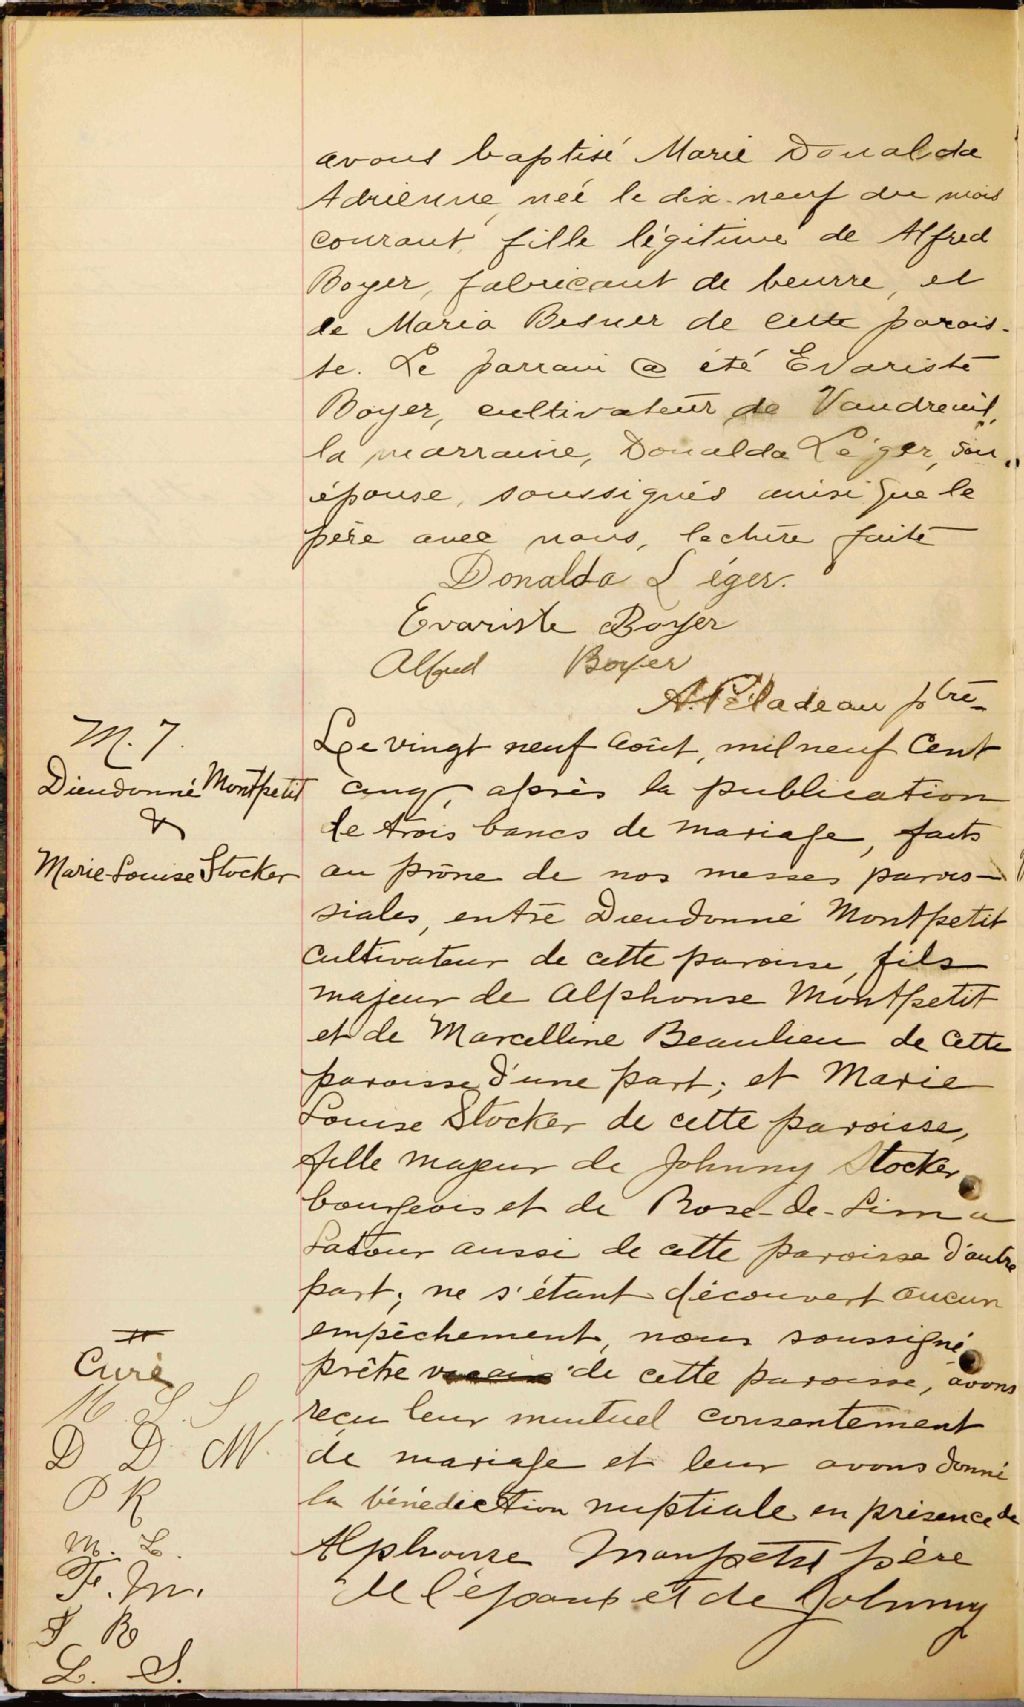 avons baptisé Marie Donalda
Adrienne, née le dix-neuf du mois
courant, fille légitime de Alfred
Boyer, fabricant de beurre, et
de Maria Besner de cette parois-
se. Le parrain a été Evariste
Boyer, cultivateur de Vaudreuil,
la marraine, Donalda Léger, son
épouse, soussignés ainsi que le
père avec nous, lecture faite
Donalda Léger.
Evariste Boyer
Alfred Boyer
A. Péladeau ptre
M. 7.
Dieudonné Montpetit
&
Marie-Louise Stocker
Le vingt neuf Août, mil neuf Cent
Cinq, après la publication
de trois bancs de mariage, faits
au prône de nos messes parois-
siales, entre Dieudonné Montpetit
Cultivateur de cette paroisse, fils
majeur de Alphonse Montpetit
et de Marcelline Beaulieu de cette
paroisse d'une part; et Marie
Louise Stocker de cette paroisse,
fille majeur de Johnny Stocker
bourgeois et de Rose-de-Lima
Latour aussi de cette paroisse d'autre
part; ne s'étant découvert aucun
empêchement, nous soussigné
prêtre vicaire de cette paroisse, avons
reçu leur mutuel consentement
de mariage et leur avons donné
la bénédiction nuptiale en présence de
Alphonse Monpetit père
de l'époux et de Johnny
Curé
M. L. S
D D M.
P R
M. L.
F. M.
J R
L. S.